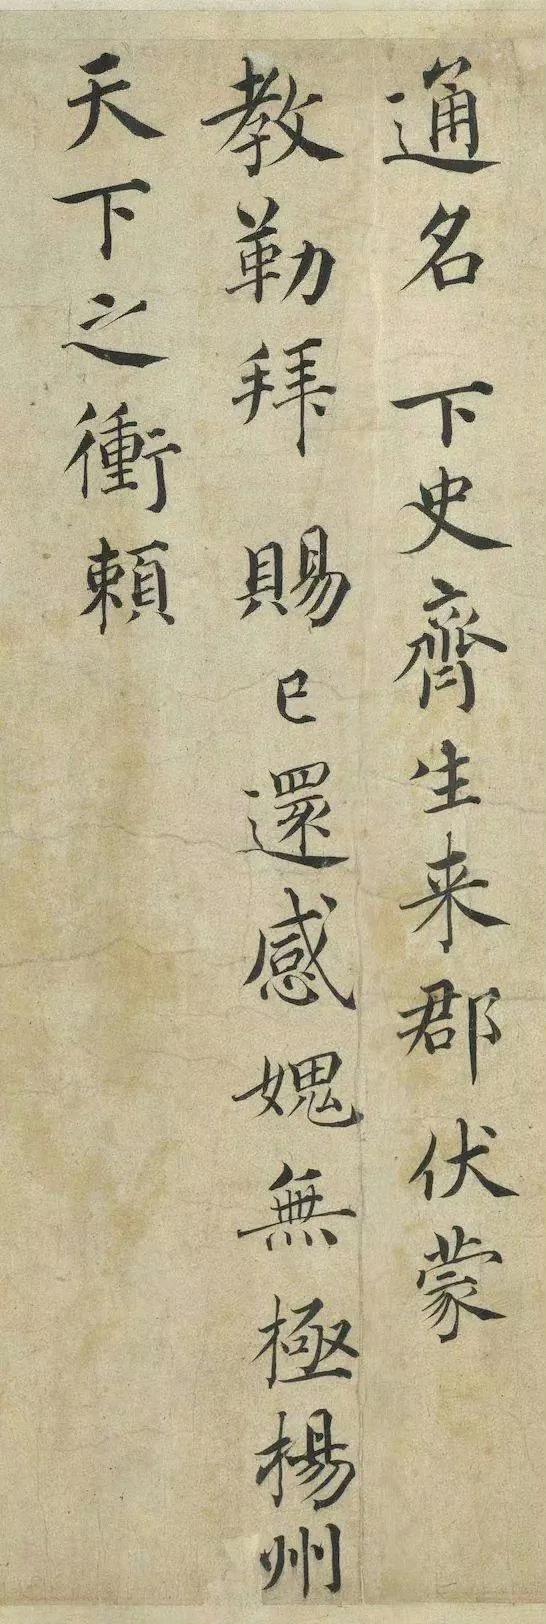 通名下史齊生来郡伏蒙
教勒拜賜已還感媿無極楊州
天下之衝頼